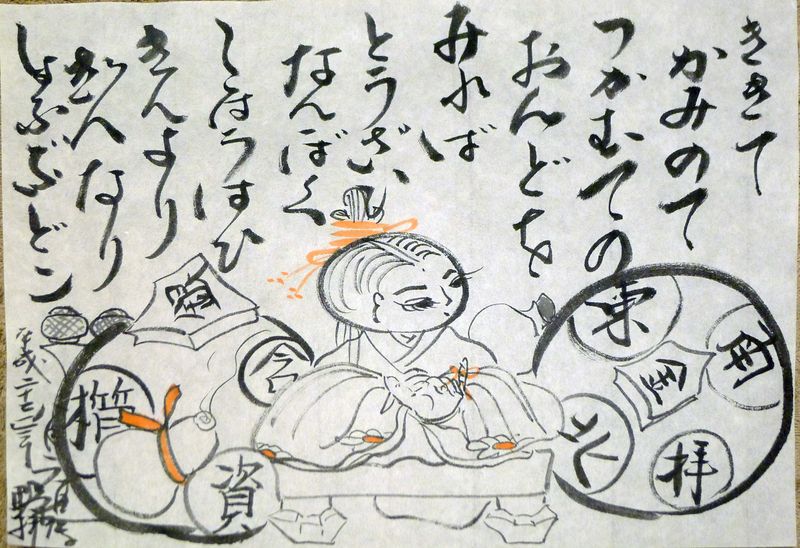 ききて
かみのて
つかむての
おんどを
みれば
とうざい
なんぼく
しほうはひ
きんより
ぎんなり
しょぶぶどこ
東
南
金
北
拝
合
資
平成二十七